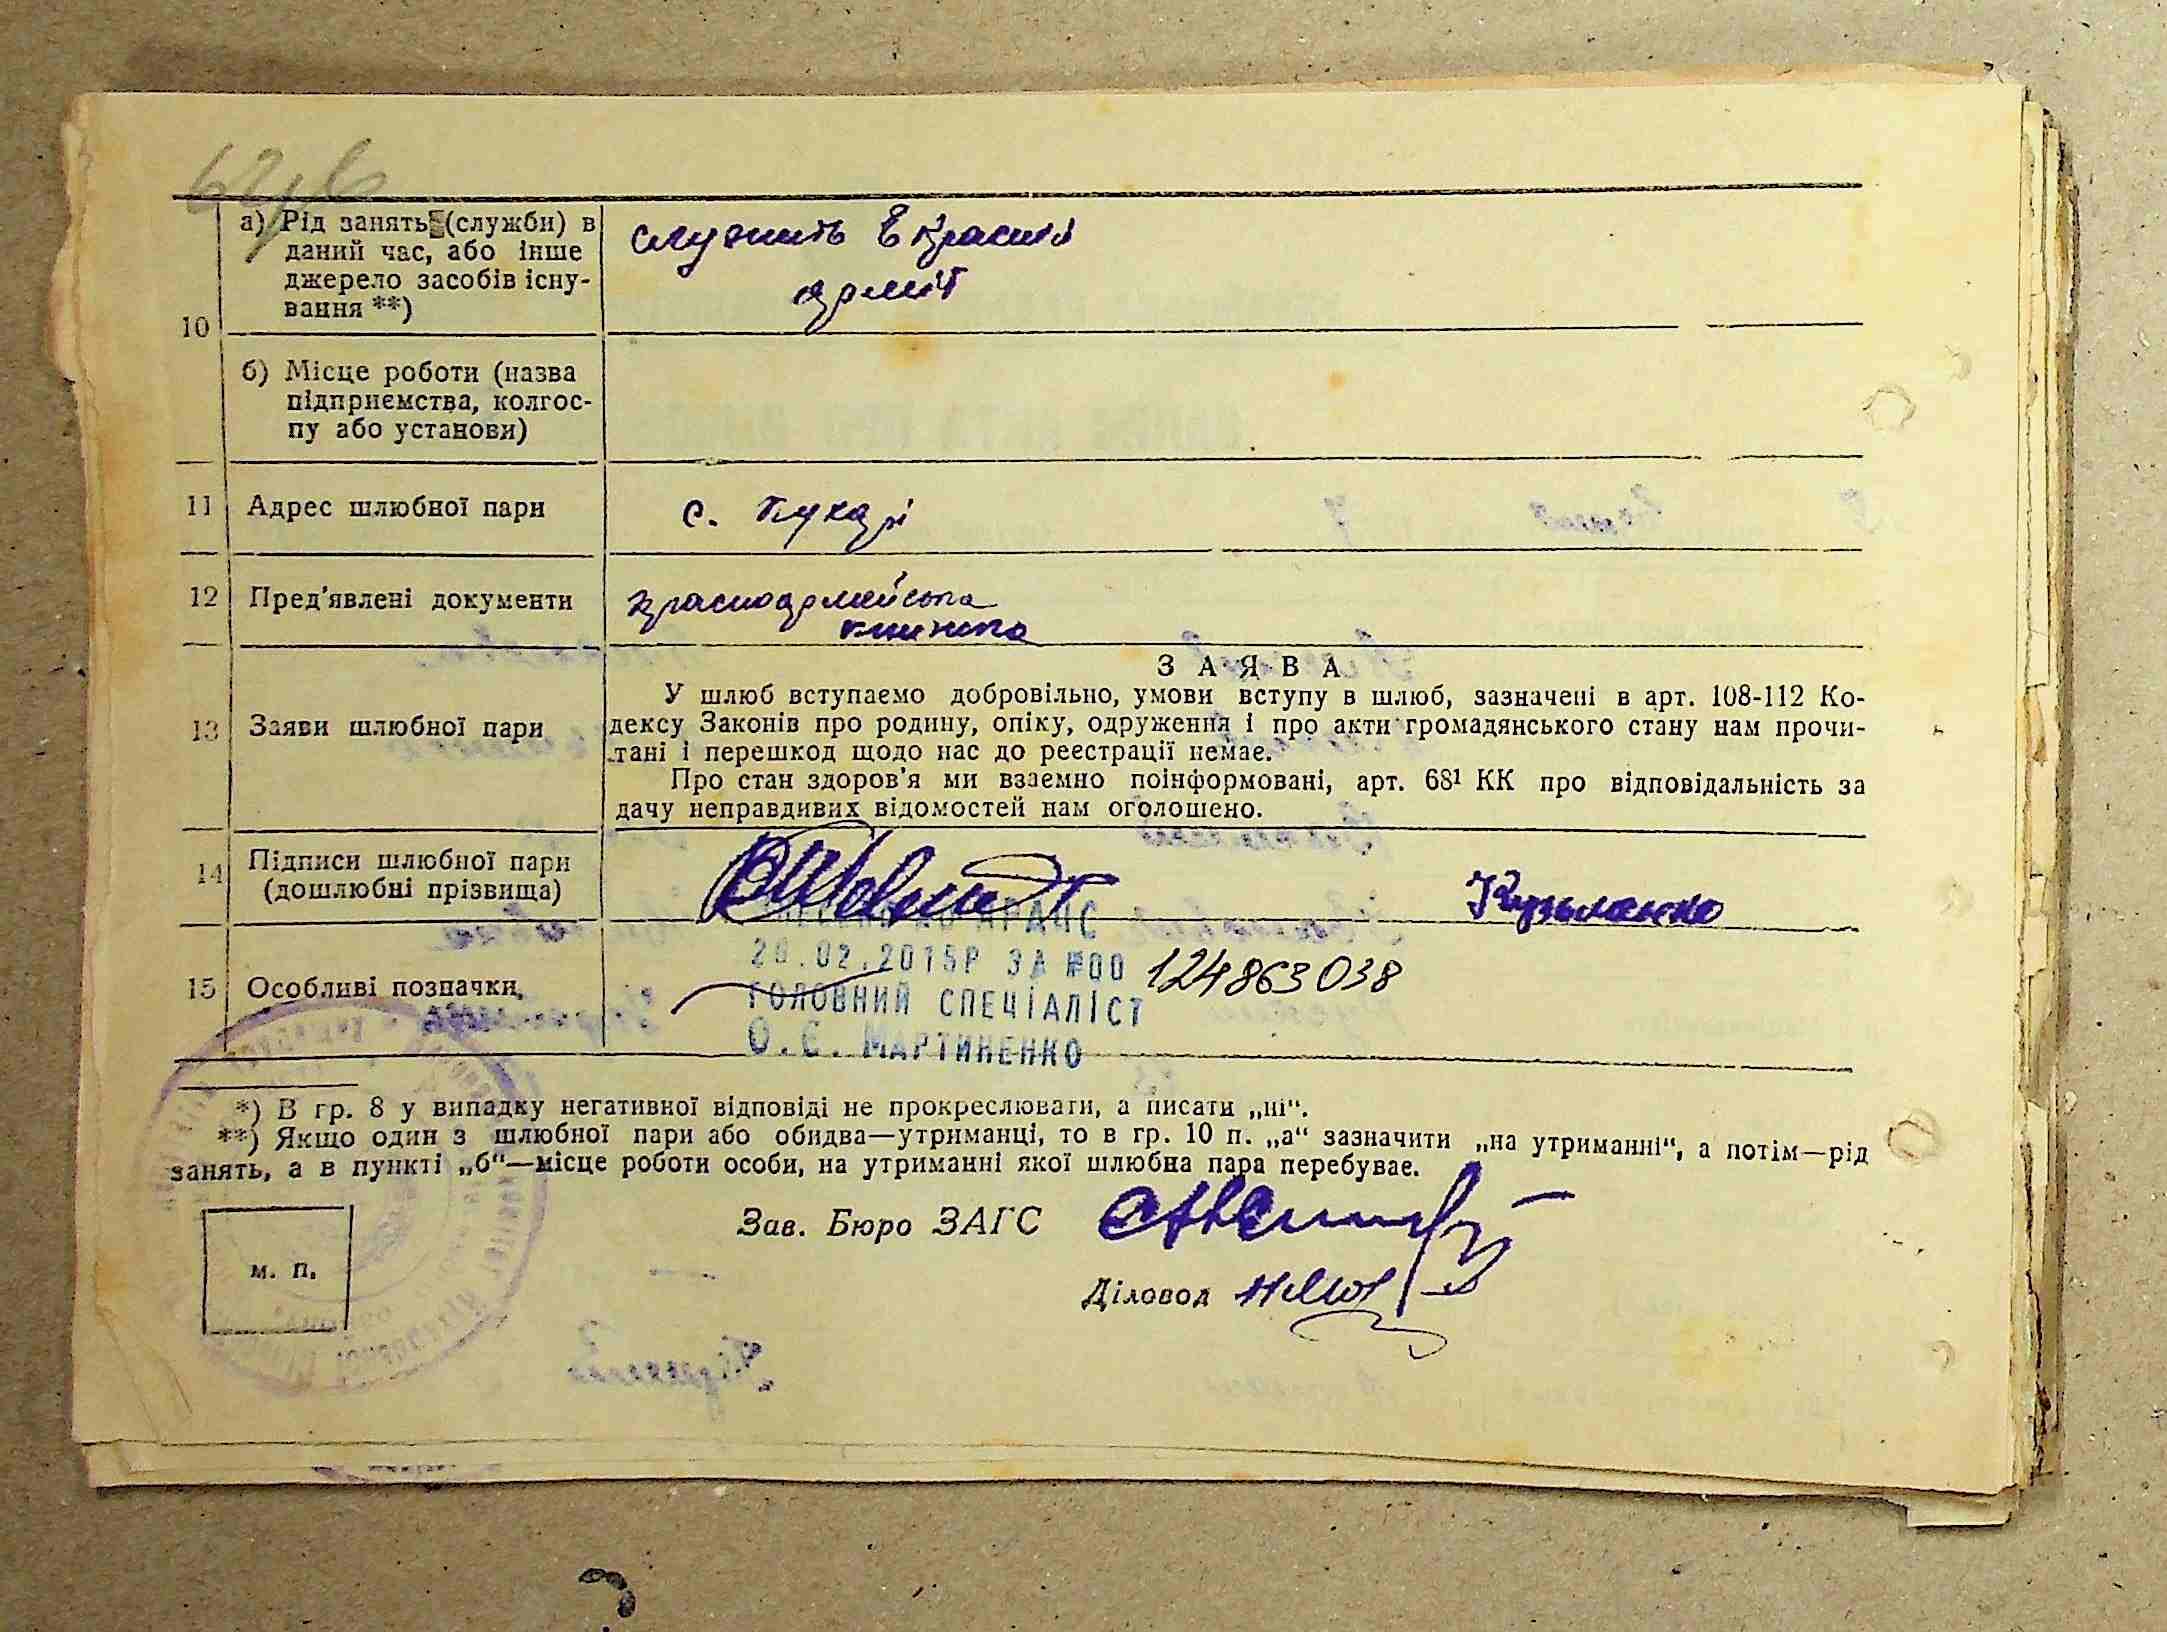 а) Рід занять (служби) в
даний час, або інше
джерело засобів існу-
вання **)
служить в красній
армії
10
б) Місце роботи (назва
підприємства, колгос-
пу або установи)
11 Адрес шлюбної пари
с. Бухарі
12 Пред'явлені документи
красноармейська
книжка
13 Заяви шлюбної пари
ЗАЯВА
У шлюб вступаємо добровільно, умови вступу в шлюб, зазначені в арт. 108-112 Ко-
дексу Законів про родину, опіку, одруження і про акти громадянського стану нам прочи-
тані і перешкод щодо нас до реестрації немає.
Про стан здоров'я ми взаємно поінформовані, арт. 68¹ КК про відповідальність за
дачу неправдивих відомостей нам оголошено.
14 Підписи шлюбної пари
(дошлюбні прізвища)
Кузьменко
ДРАЧС
20.02.2015Р ЗА №00 124863038
15 Особливі позначки.
ГОЛОВНИЙ СПЕЦІАЛІСТ
О.Є. МАРТИНЕНКО
*) В гр. 8 у випадку негативної відповіді не прокреслювати, а писати „ні“.
**) Якщо один з шлюбної пари або обидва—утриманці, то в гр. 10 п. „а“ зазначити „на утриманні“, а потім—рід
занять, а в пункті „б“—місце роботи особи, на утриманні якої шлюбна пара перебуває.
Зав. Бюро ЗАГС
м. п.
Діловод